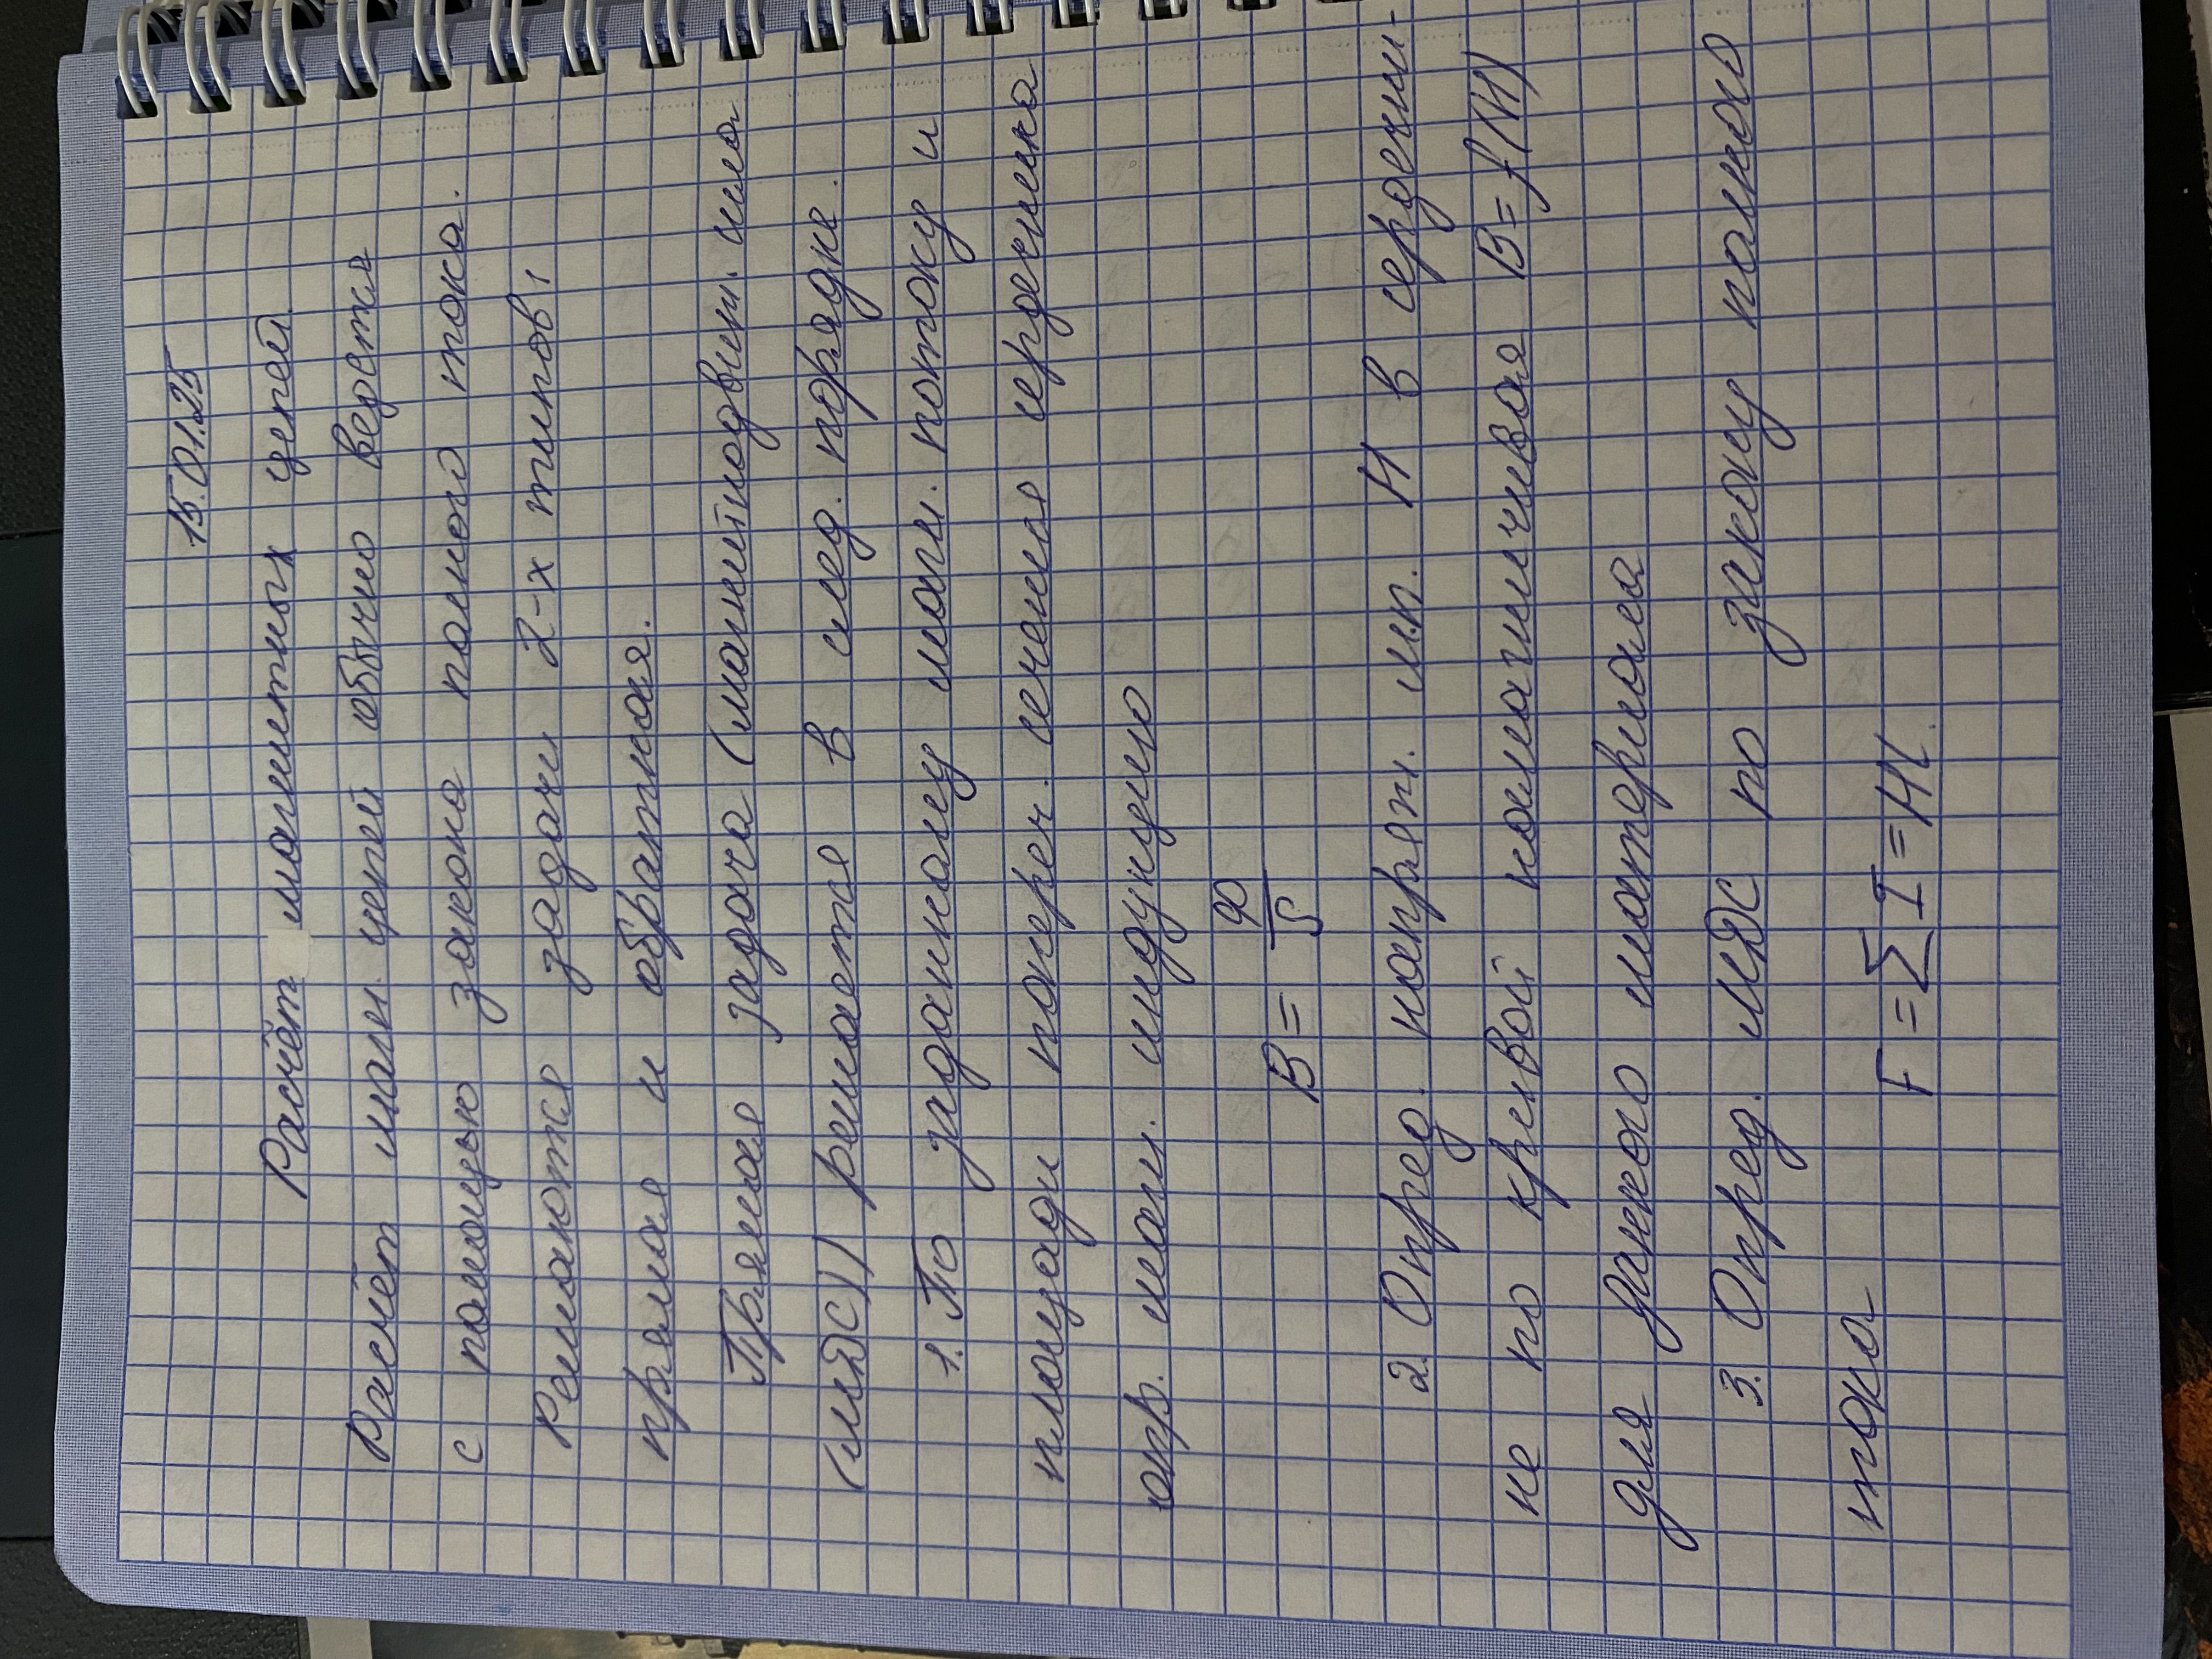 15.01.25
Расчёт магнитных цепей
Расчёт магн. цепей обычно ведется
с помощью закона полного тока.
Решаются задачи 2-х типов:
прямая и обратная.
Прямая задача (магнитнодвиж. сила
(МДС)) решается в след. порядке.
1. По заданному магн. потоку и
площади попереч. сечения сердечника
опр. магн. индукцию
B = Φ/S
2. Опред. напряж. м.п. H в сердечни-
ке по кривой намагничивая B = f(H)
для данного материала
3. Опред. МДС по закону полного
тока
F = ∑ I = Hl.